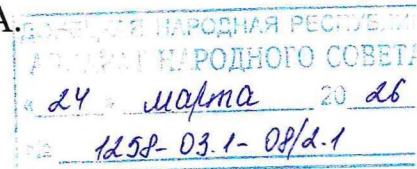 А.
ДОНЕЦКАЯ НАРОДНАЯ РЕСПУБЛИКА
АППАРАТ НАРОДНОГО СОВЕТА
« 24 » марта 20 26
№ 1258-03.1-08/2.1